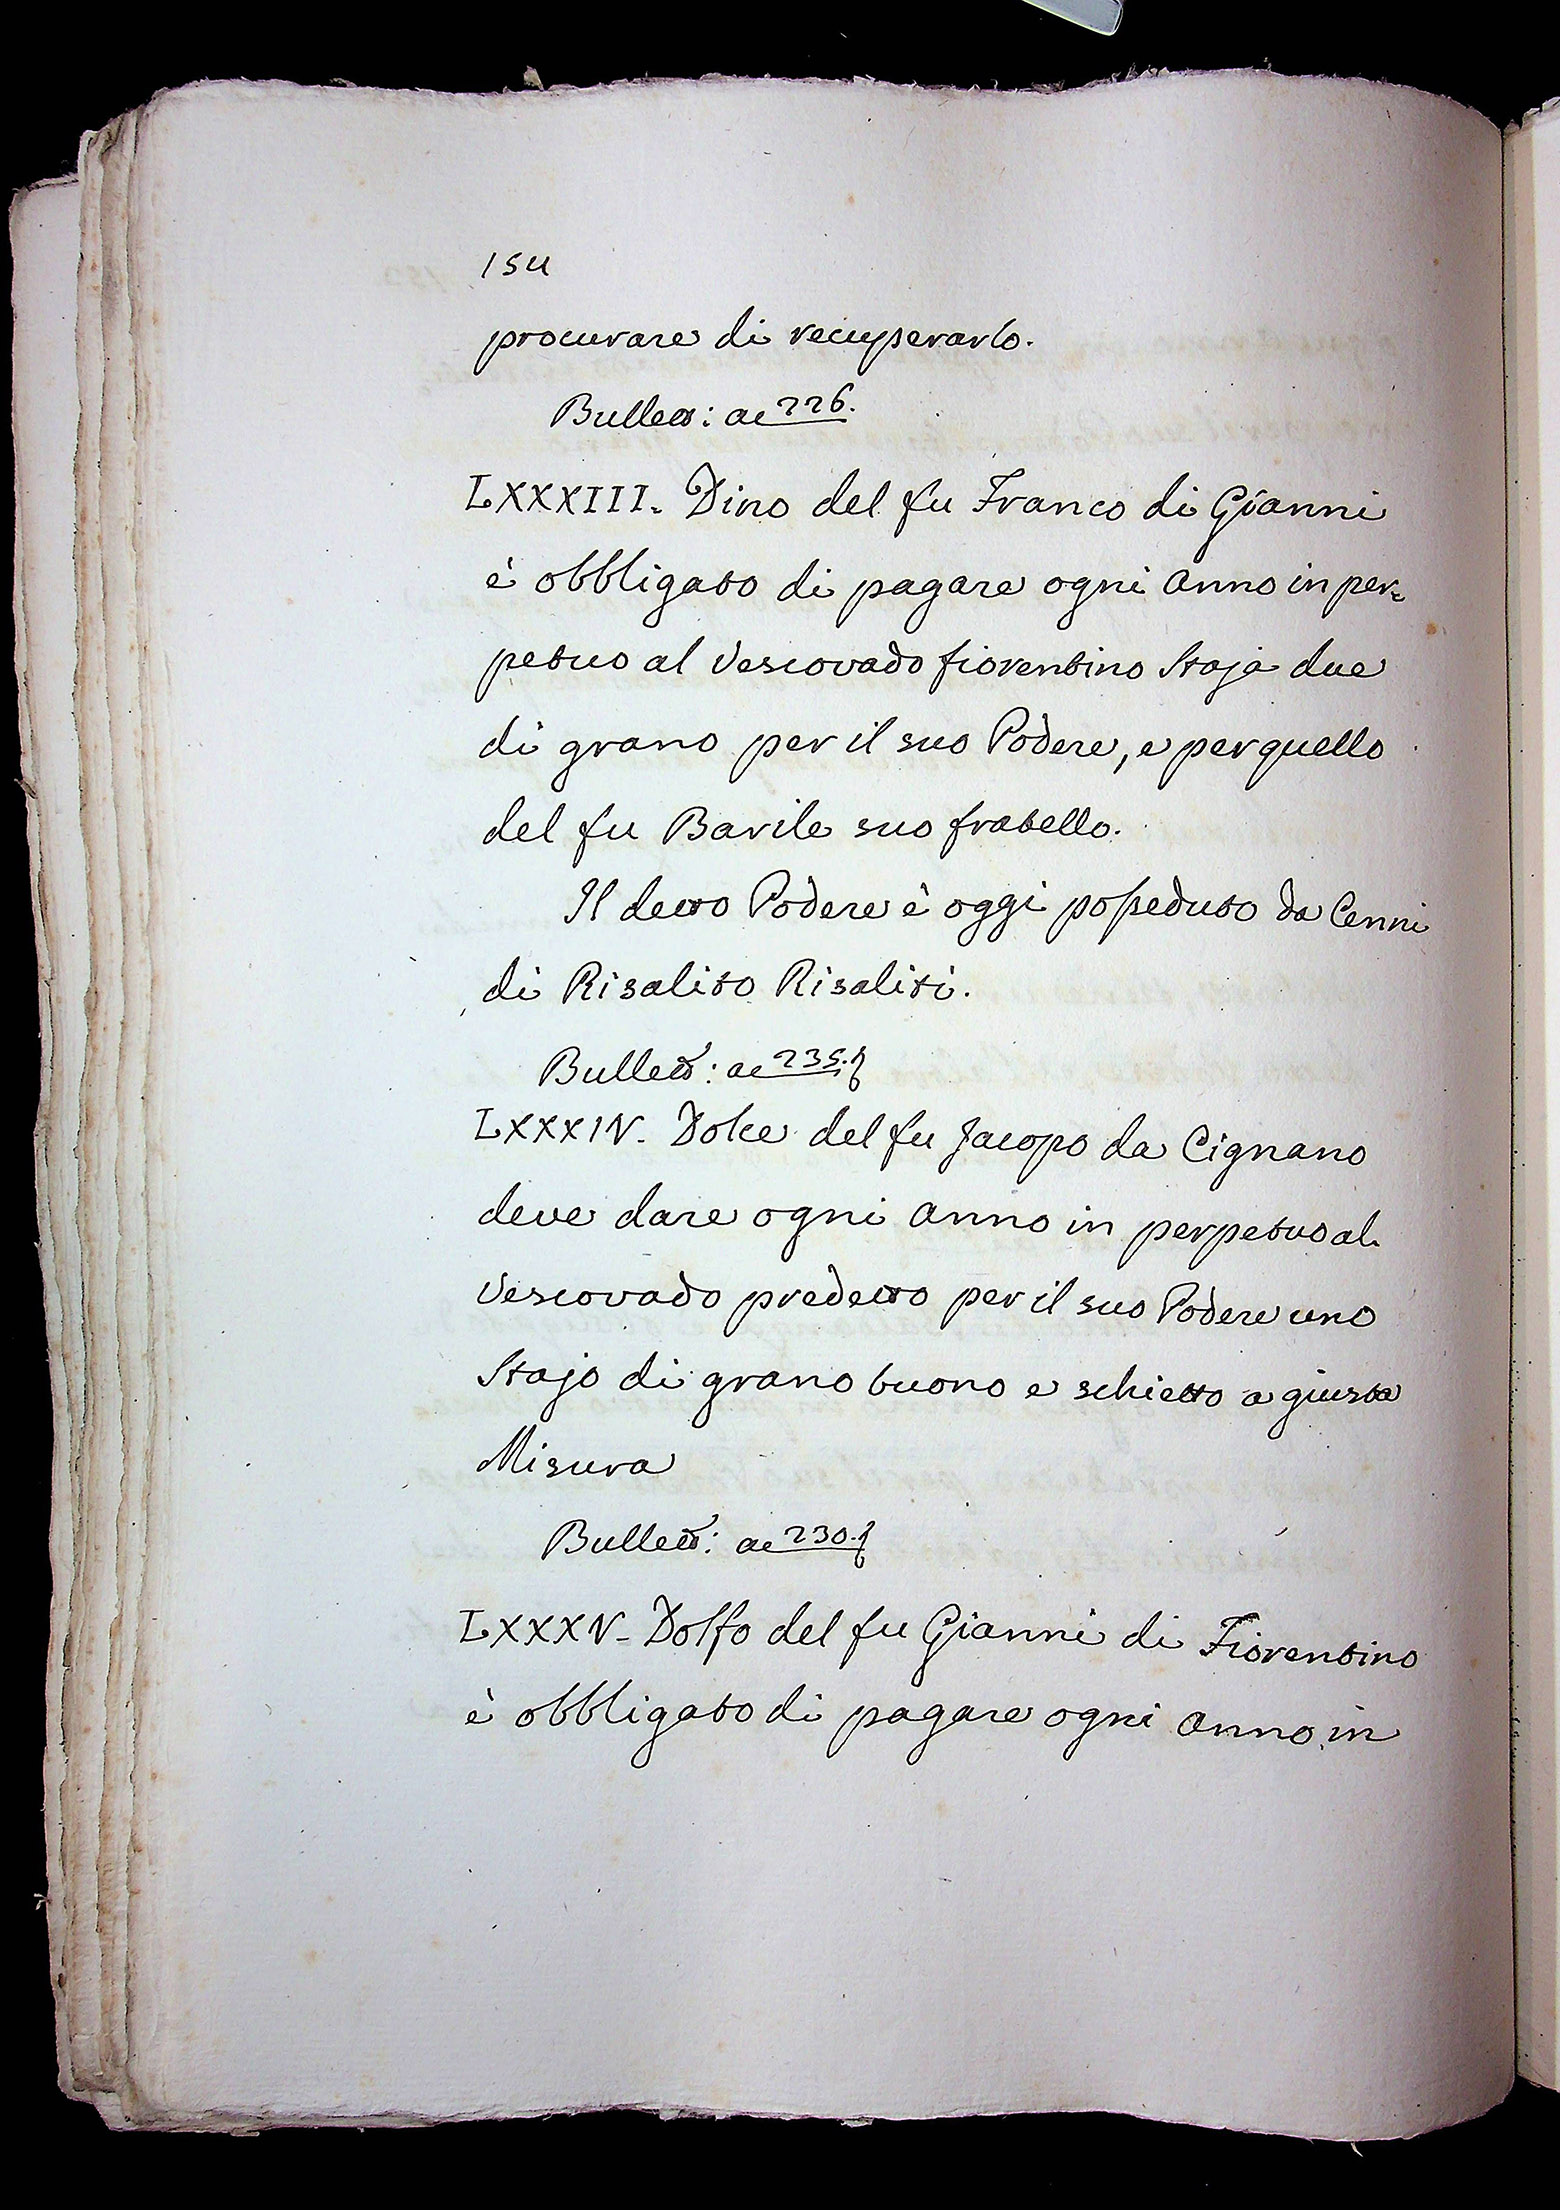 154
procurare di recuperarlo.
Bullett: ac 226.
LXXXIII. Dino del fu Franco di Gianni
è obbligato di pagare ogni anno in per=
petuo al Vescovado fiorentino Staja due
di grano per il suo Podere, e per quello
del fu Barile suo fratello.
Il detto Podere è oggi posseduto da Cenni
di Risalito Risaliti.
Bullett: ac 235.
LXXXIV. Dolce del fu Jacopo da Cignano
deve dare ogni anno in perpetuo al
Vescovado predetto per il suo Podere uno
Stajo di grano buono e schietto a giusta
Misura
Bullett: ac 230.
LXXXV. Dolfo del fu Gianni di Fiorentino
è obbligato di pagare ogni anno in